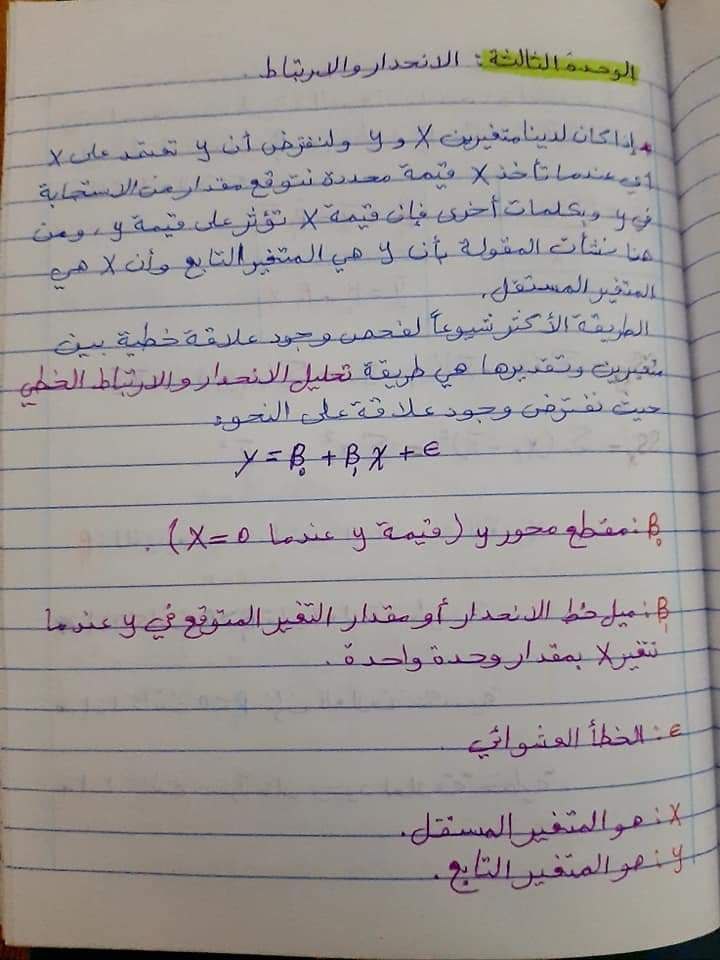 الوحدة الثالثة: الانحدار والارتباط.
* إذا كان لدينا متغيرين X و y ولنفترض أن y تعتمد على X
أي عندما تأخذ X قيمة محددة نتوقع مقدار من الاستجابة
في y وبكلمات أخرى فإن قيمة X تؤثر على قيمة y، ومن
هنا نشأت المقولة بأن y هي المتغير التابع وأن X هي
المتغير المستقل.
الطريقة الأكثر شيوعاً لفحص وجود علاقة خطية بين
متغيرين وتقديرها هي طريقة تحليل الانحدار والارتباط الخطي
حيث نفترض وجود علاقة على النحو:
y = β₀ + β₁ X + ϵ
β₀: مقطع محور y (قيمة y عندما X = 0).
β₁: ميل خط الانحدار أو مقدار التغير المتوقع في y عندما
تتغير X بمقدار وحدة واحدة.
ϵ: الخطأ العشوائي.
X: هو المتغير المستقل.
y: هو المتغير التابع.